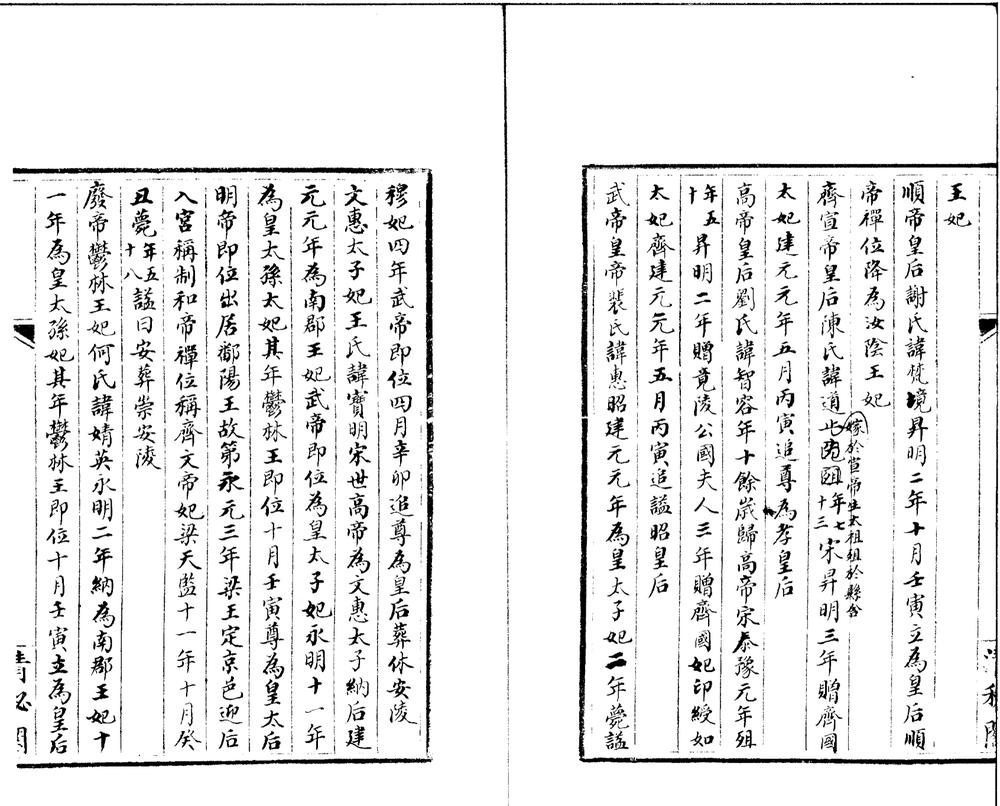 王妃
順帝皇后謝氏諱梵境昇明二年十月壬寅立為皇后順
帝禪位降為汝陰王妃
嫁於宣帝生太祖殂於縣舍
齊宣帝皇后陳氏諱道止殂年七十三宋昇明三年贈齊國
太妃建元元年五月丙寅追尊為孝皇后
高帝皇后劉氏諱智容年十餘歲歸高帝宋泰豫元年殂
年五十昇明二年贈竟陵公國夫人三年贈齊國妃印綬如
太妃齊建元元年五月丙寅追謚昭皇后
武帝皇帝裴氏諱惠昭建元元年為皇太子妃二年薨謚
穆妃四年武帝即位四月辛卯追尊為皇后葬休安陵
文惠太子妃王氏諱寶明宋世高帝為文惠太子納后建
元元年為南郡王妃武帝即位為皇太子妃永明十一年
為皇太孫太妃其年鬱林王即位十月壬寅尊為皇太后
明帝即位出居鄱陽王故第永元三年梁王定京邑迎后
入宮稱制和帝禪位稱齊文帝妃梁天監十一年十月癸
丑薨年五十八謚曰安葬崇安陵
廢帝鬱林王妃何氏諱婧英永明二年納為南郡王妃十
一年為皇太孫妃其年鬱林王即位十月壬寅立為皇后